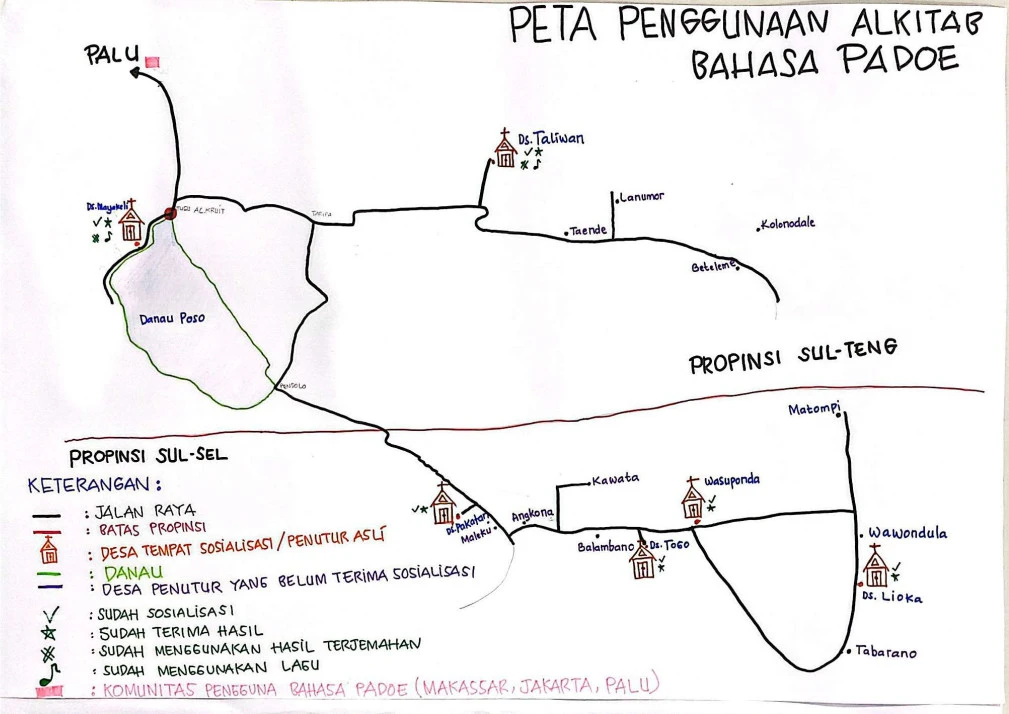 PETA PENGGUNAAN ALKITAB
BAHASA PADOE
PALU
Ds. Taliwan
Lanumor
Taende
Kolonodale
Beteleme
Ds. Mayakeli
TUGU ALKRUIT
TARIPA
Danau Poso
PENDOLO
PROPINSI SUL-TENG
PROPINSI SUL-SEL
Matompi
Kawata
Wasuponda
Angkona
Ds. Pakatan
Maleku
Balambano
Ds. Togo
Wawondula
Ds. Lioka
Tabarano
KETERANGAN :
: JALAN RAYA
: BATAS PROPINSI
: DESA TEMPAT SOSIALISASI / PENUTUR ASLI
: DANAU
: DESA PENUTUR YANG BELUM TERIMA SOSIALISASI
: SUDAH SOSIALISASI
: SUDAH TERIMA HASIL
: SUDAH MENGGUNAKAN HASIL TERJEMAHAN
: SUDAH MENGGUNAKAN LAGU
: KOMUNITAS PENGGUNA BAHASA PADOE (MAKASSAR, JAKARTA, PALU)